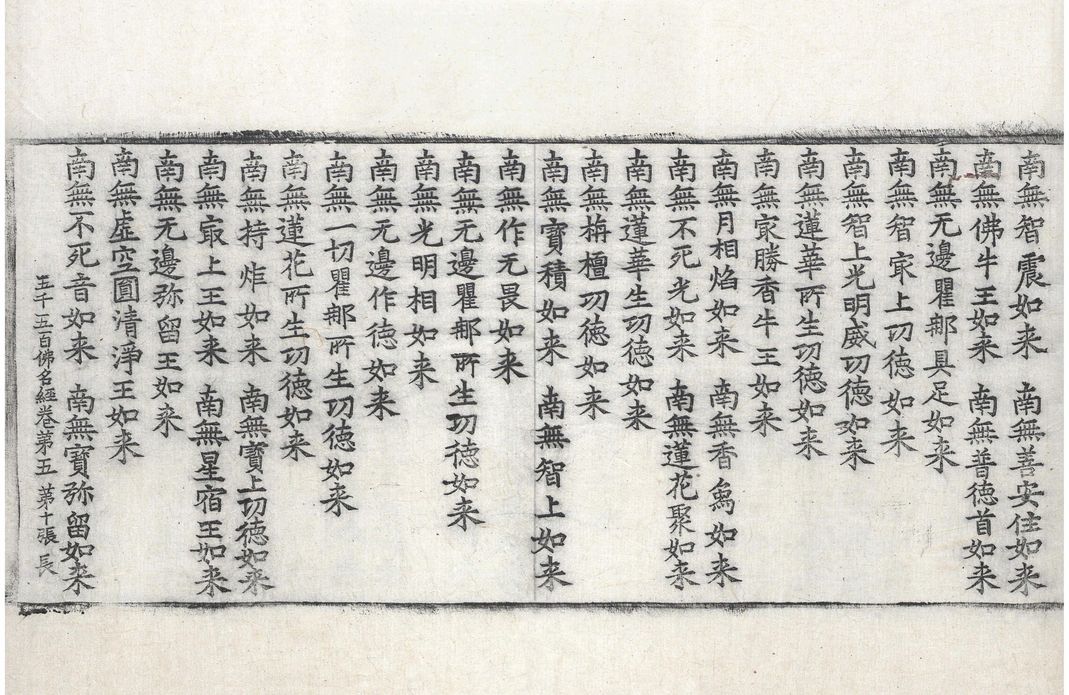 南無智震如来 南無善安住如来
南無佛牛王如来 南無普德首如来
南無无邊瞿那具足如来
南無智㝡上功德如来
南無智上光明威功德如来
南無蓮華所生功德如来
南無㝡勝香牛王如来
南無月相焰如来 南無香烏如来
南無不死光如来 南無蓮花聚如来
南無蓮華生功德如来
南無栴檀功德如来
南無寶積如来 南無智上如来
南無作无畏如来
南無无邊瞿那所生功德如来
南無光明相如来
南無无邊作德如来
南無一切瞿那所生功德如来
南無蓮花所生功德如来
南無持炬如来 南無寶上功德如来
南無㝡上王如来 南無星宿王如来
南無无邊弥留王如来
南無虛空圎清淨王如来
南無不死音如来 南無寶弥留如来
五千五百佛名經卷第五 第十張 長